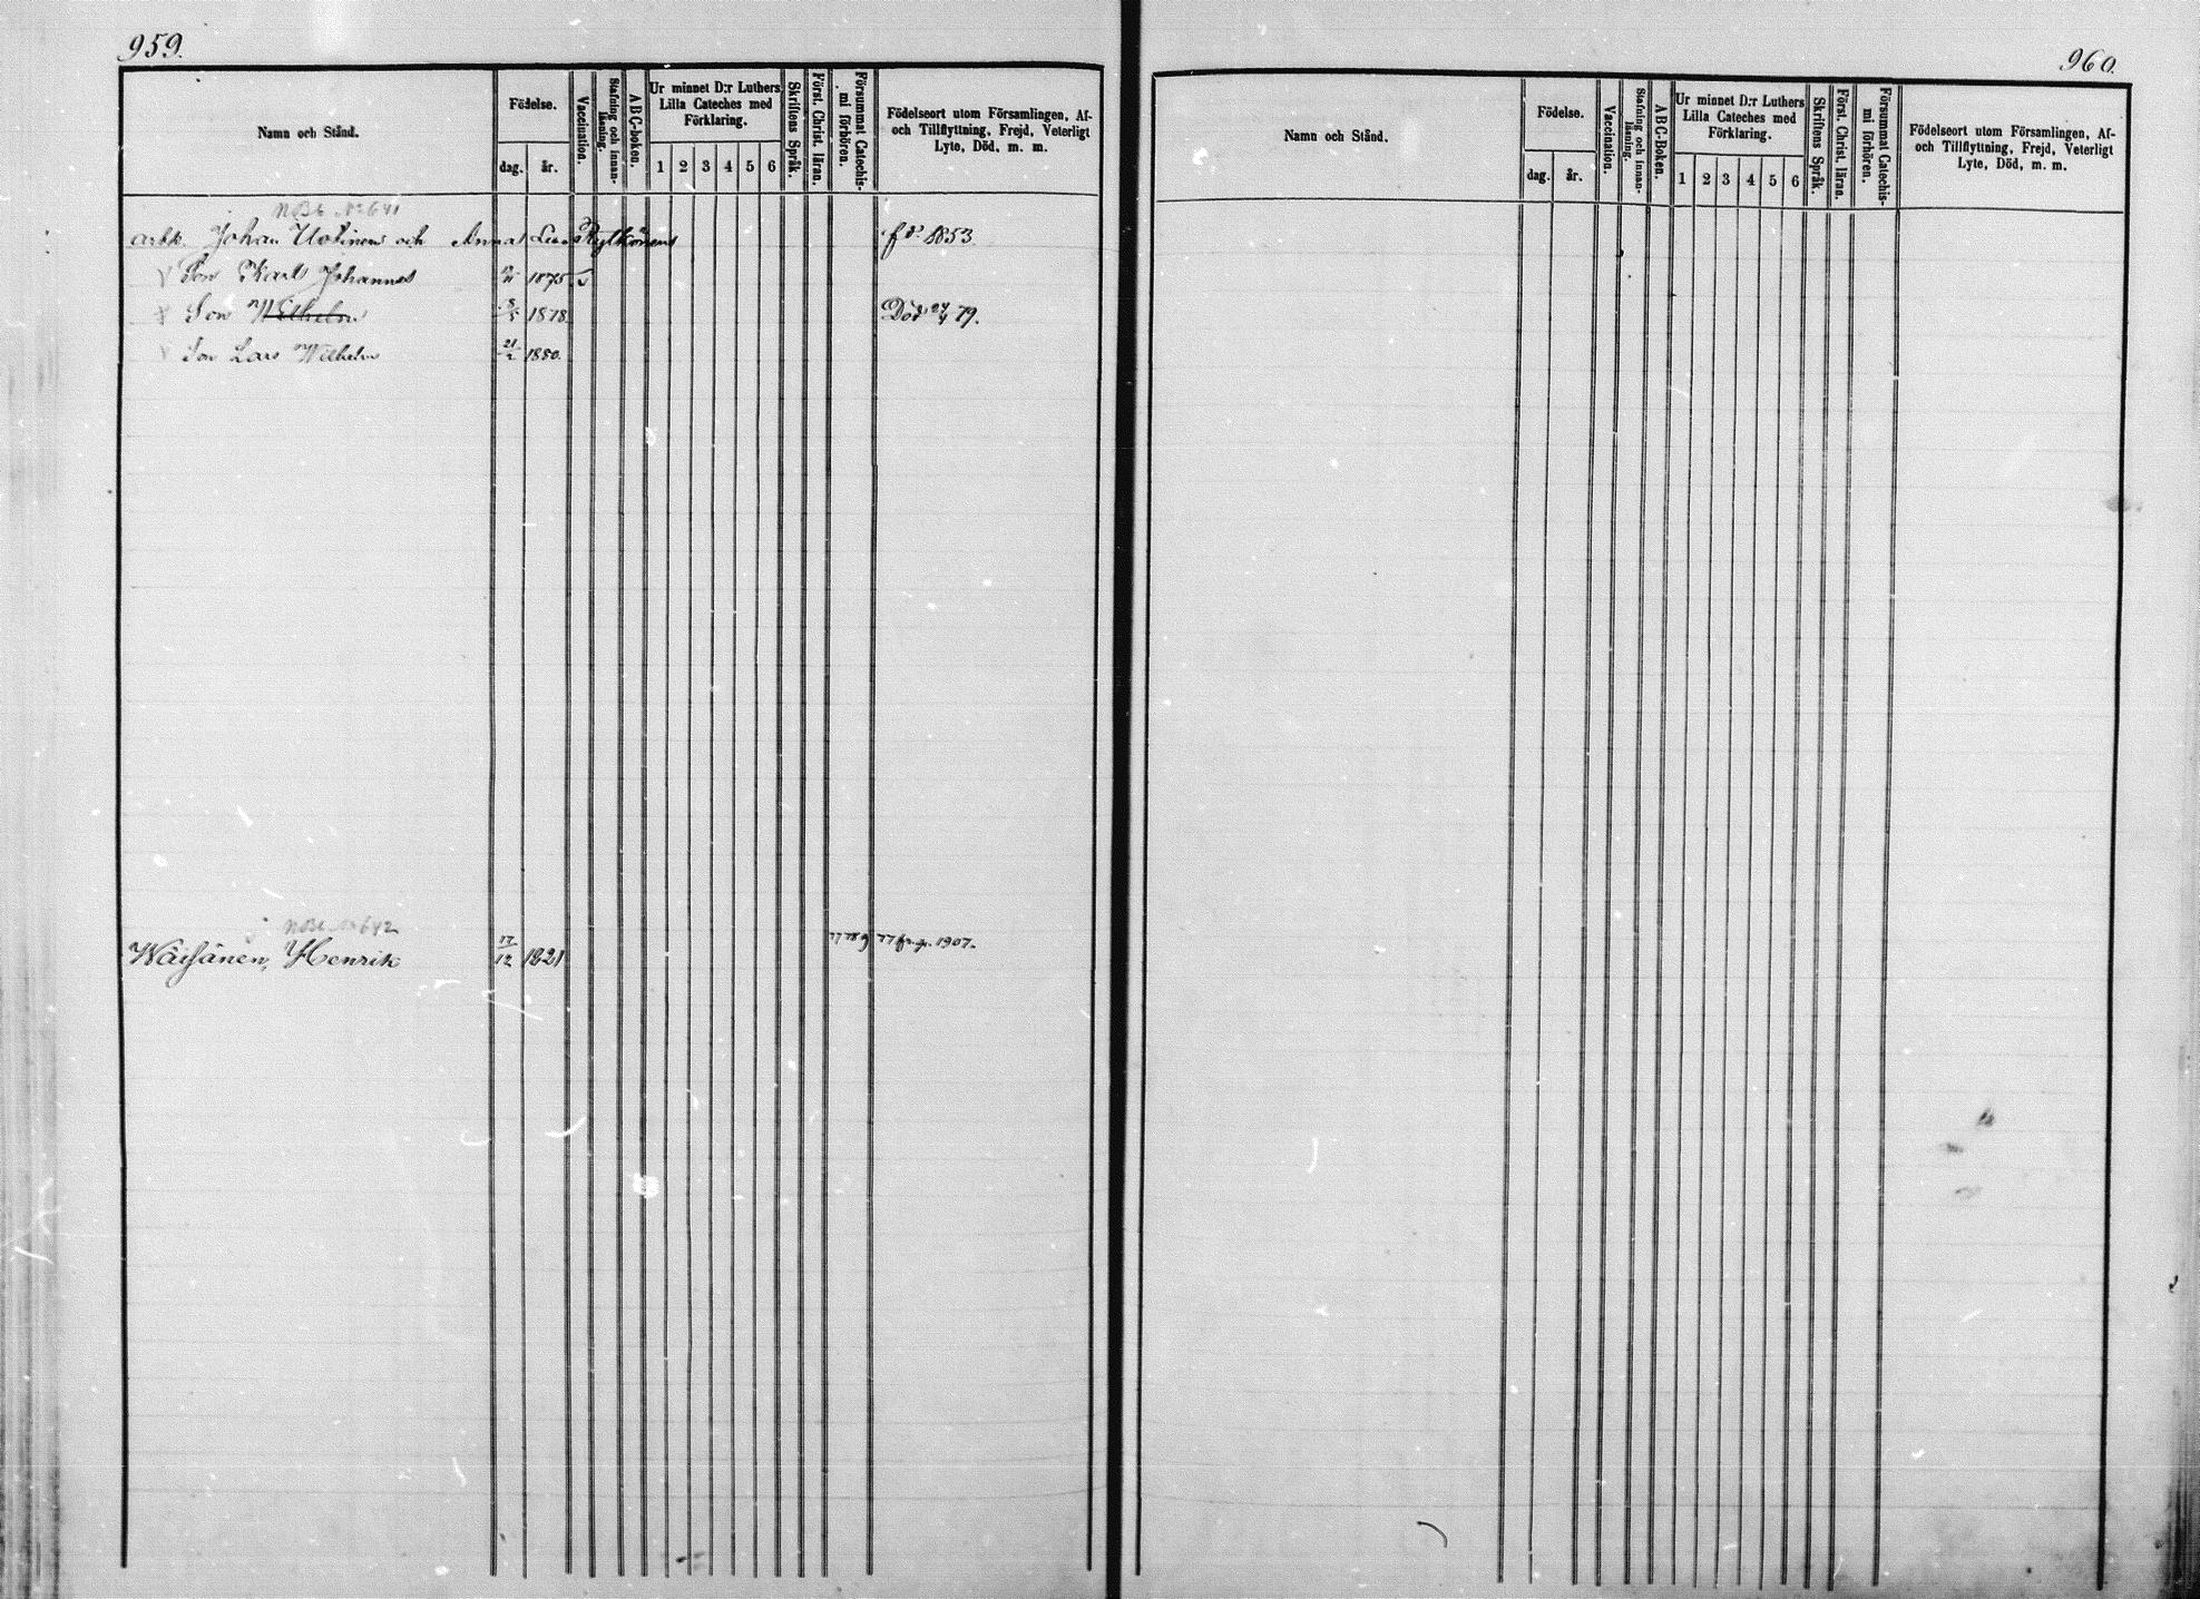 959.
Namn och Stånd.
Födelse.
dag.
år.
Vaccination.
Stafning och innan-
läsning.
ABC-boken.
Ur minnet D:r Luthers
Lilla Cateches med
Förklaring.
1 2 3 4 5 6
Skriftens Språk.
Först. Christ. läran.
Försummat Catechis-
mi förhören.
Födelseort utom Församlingen, Af-
och Tillflyttning, Frejd, Veterligt
Lyte, Död, m. m.
No 641
Johan Uotinen och Anna
1853
Son Karl Johannes 1875
Son Wilhelm 1878. Död 79.
Son Lars Wilhelm 21/2 1880.
No 642
Wäisänen, Henrik 17/12 1821 1907.
960.
Namn och Stånd.
Födelse.
dag.
år.
Vaccination.
Stafning och innan-
läsning.
ABC-Boken.
Ur minnet D:r Luthers
Lilla Cateches med
Förklaring.
1 2 3 4 5 6
Skriftens Språk.
Först. Christ. läran.
Försummat Catechis-
mi förhören.
Födelseort utom Församlingen, Af-
och Tillflyttning, Frejd, Veterligt
Lyte, Död, m. m.